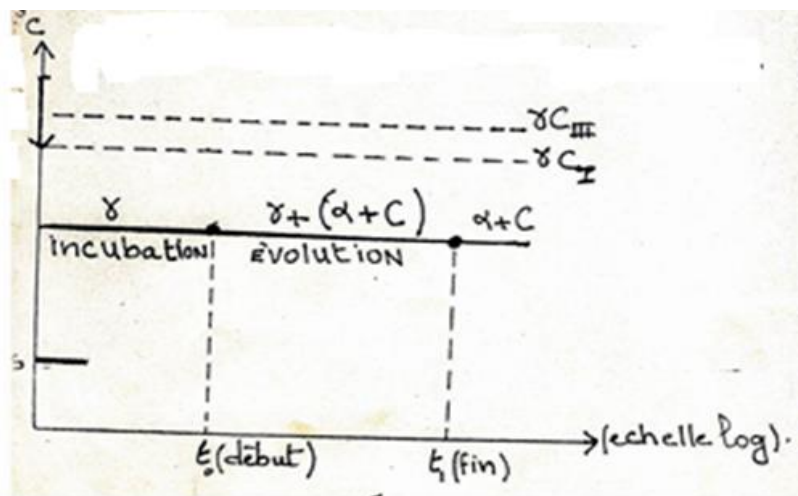 C
γC III
γC I
γ γ+(α+C) α+C
incubation Evolution
s
t₀(début) t₁(fin) (echelle log).